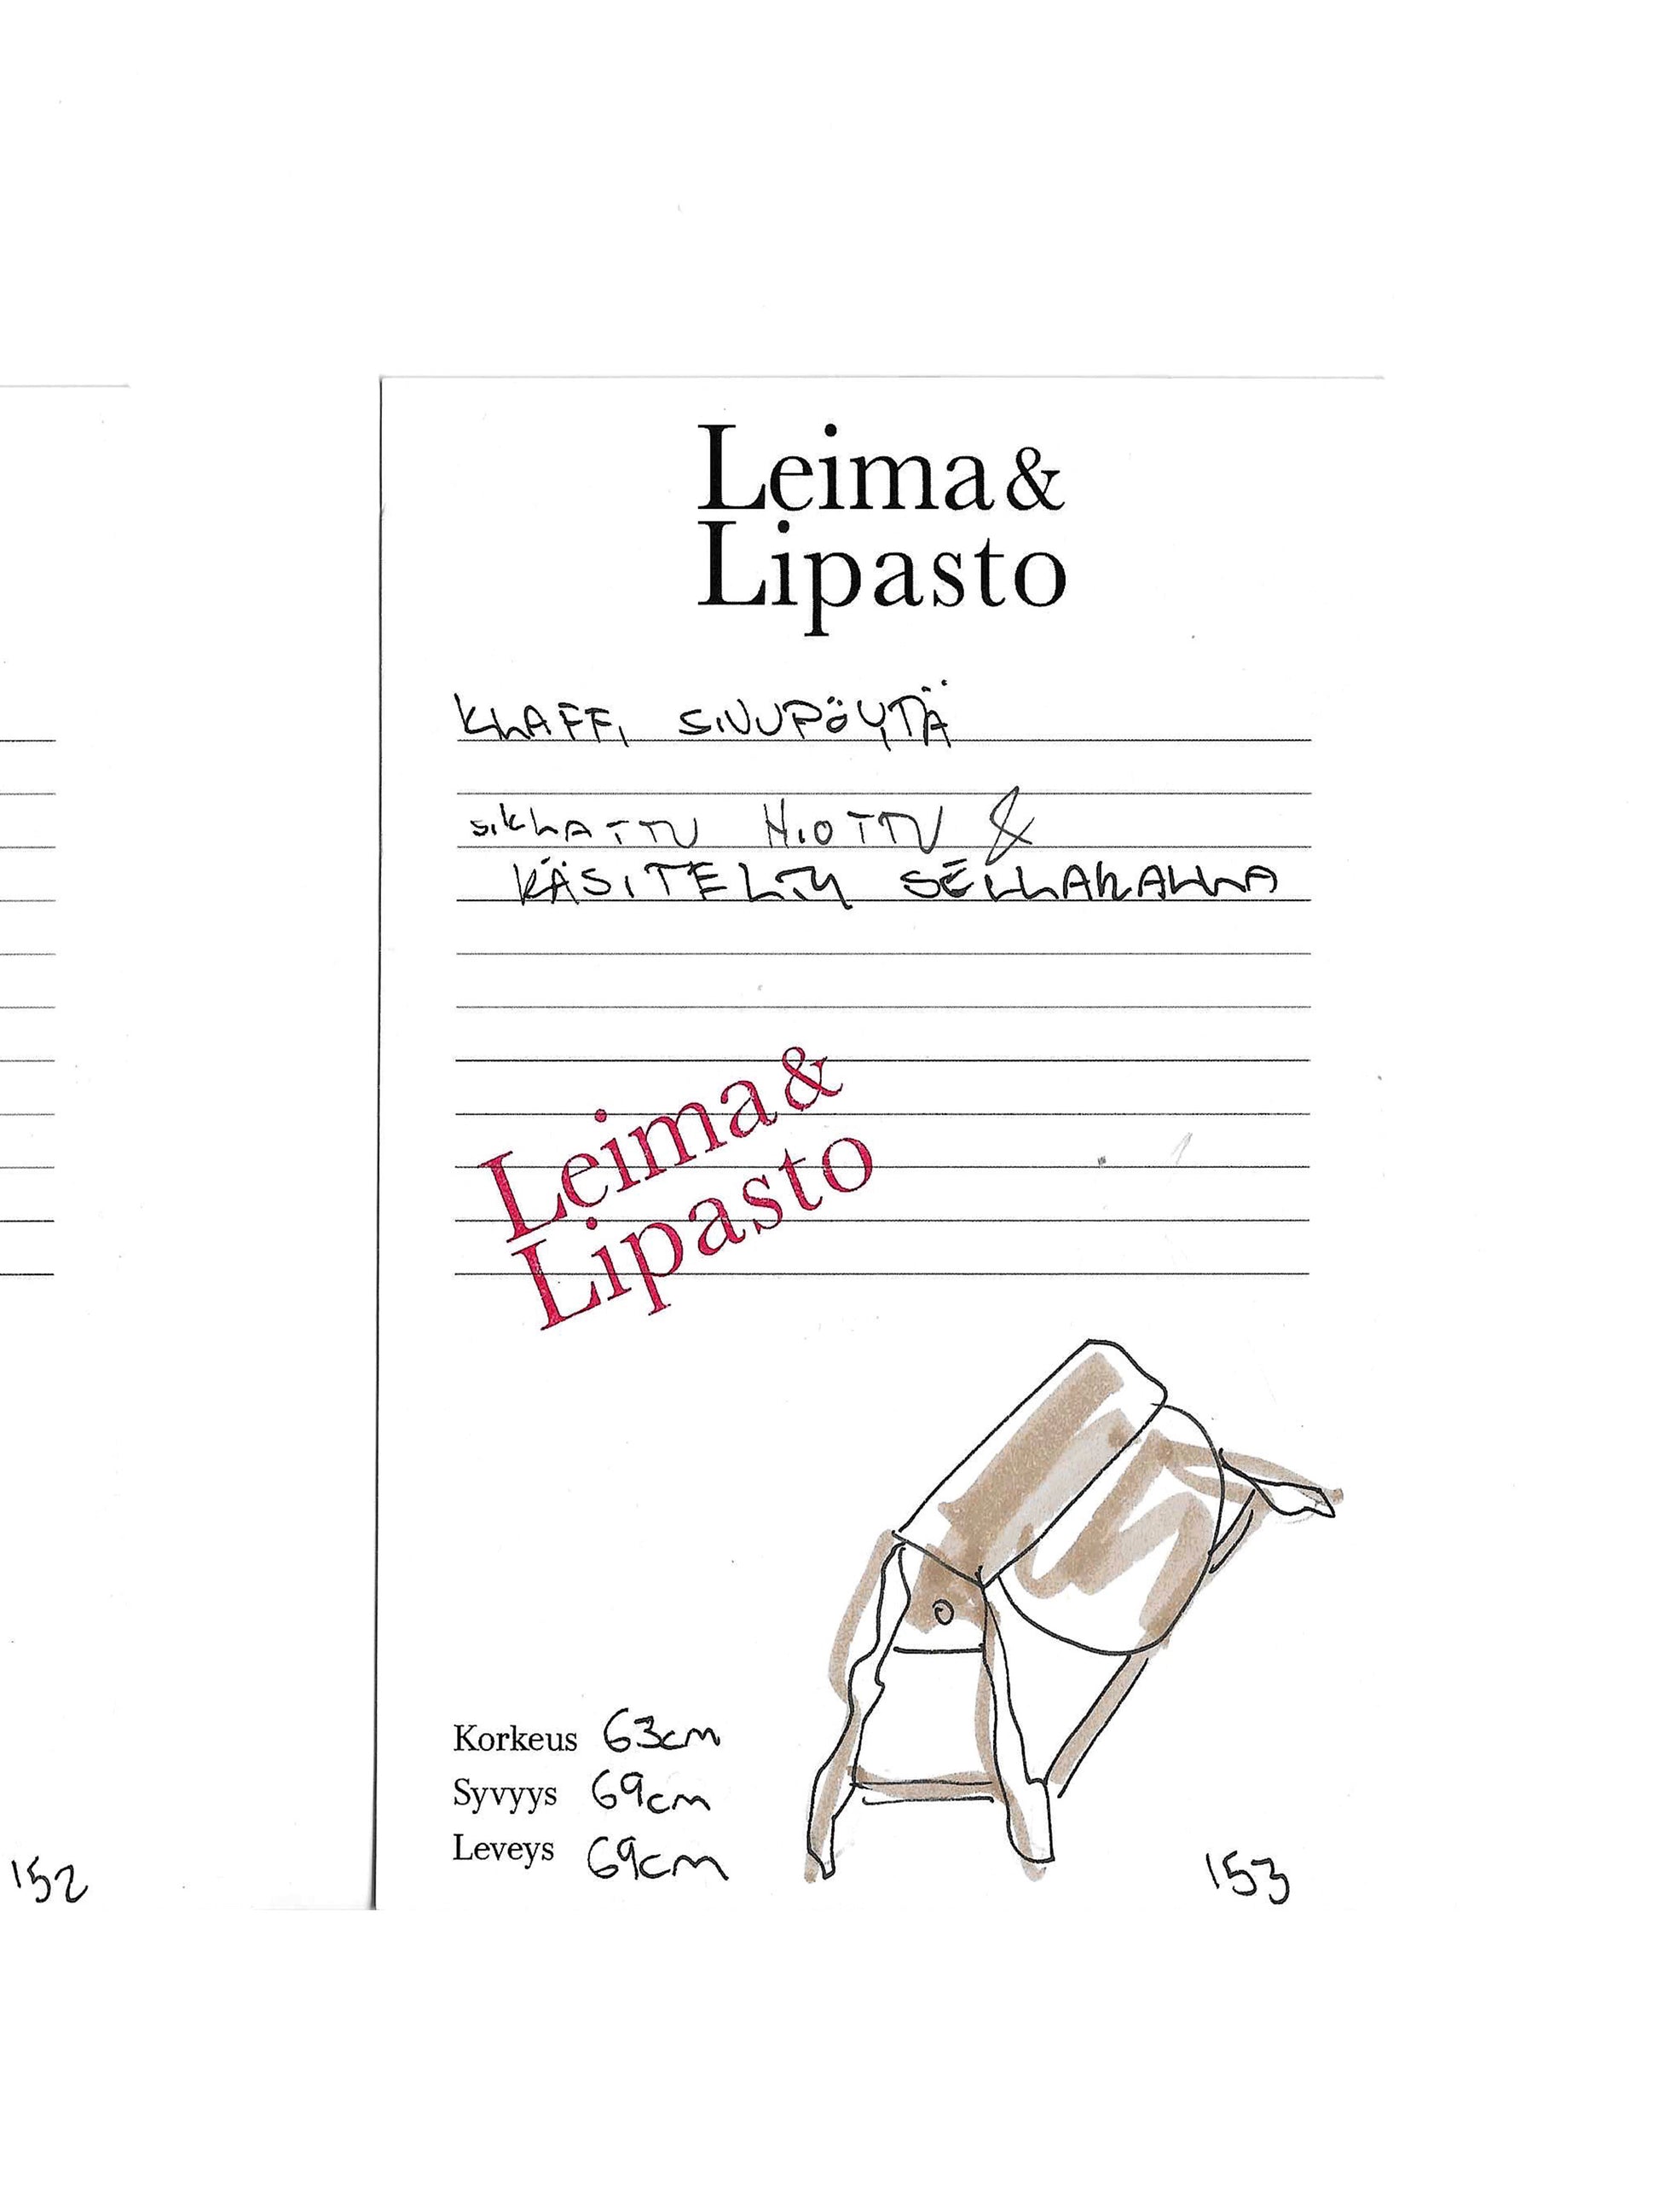 Leima &
Lipasto
KLAFFI SIVUPÖYTÄ
SIKLATTU HIOTTU &
KÄSITELTY SELLAKALLA
Leima &
Lipasto
Korkeus 63cm
Syvyys 69cm
Leveys 69cm
153
152